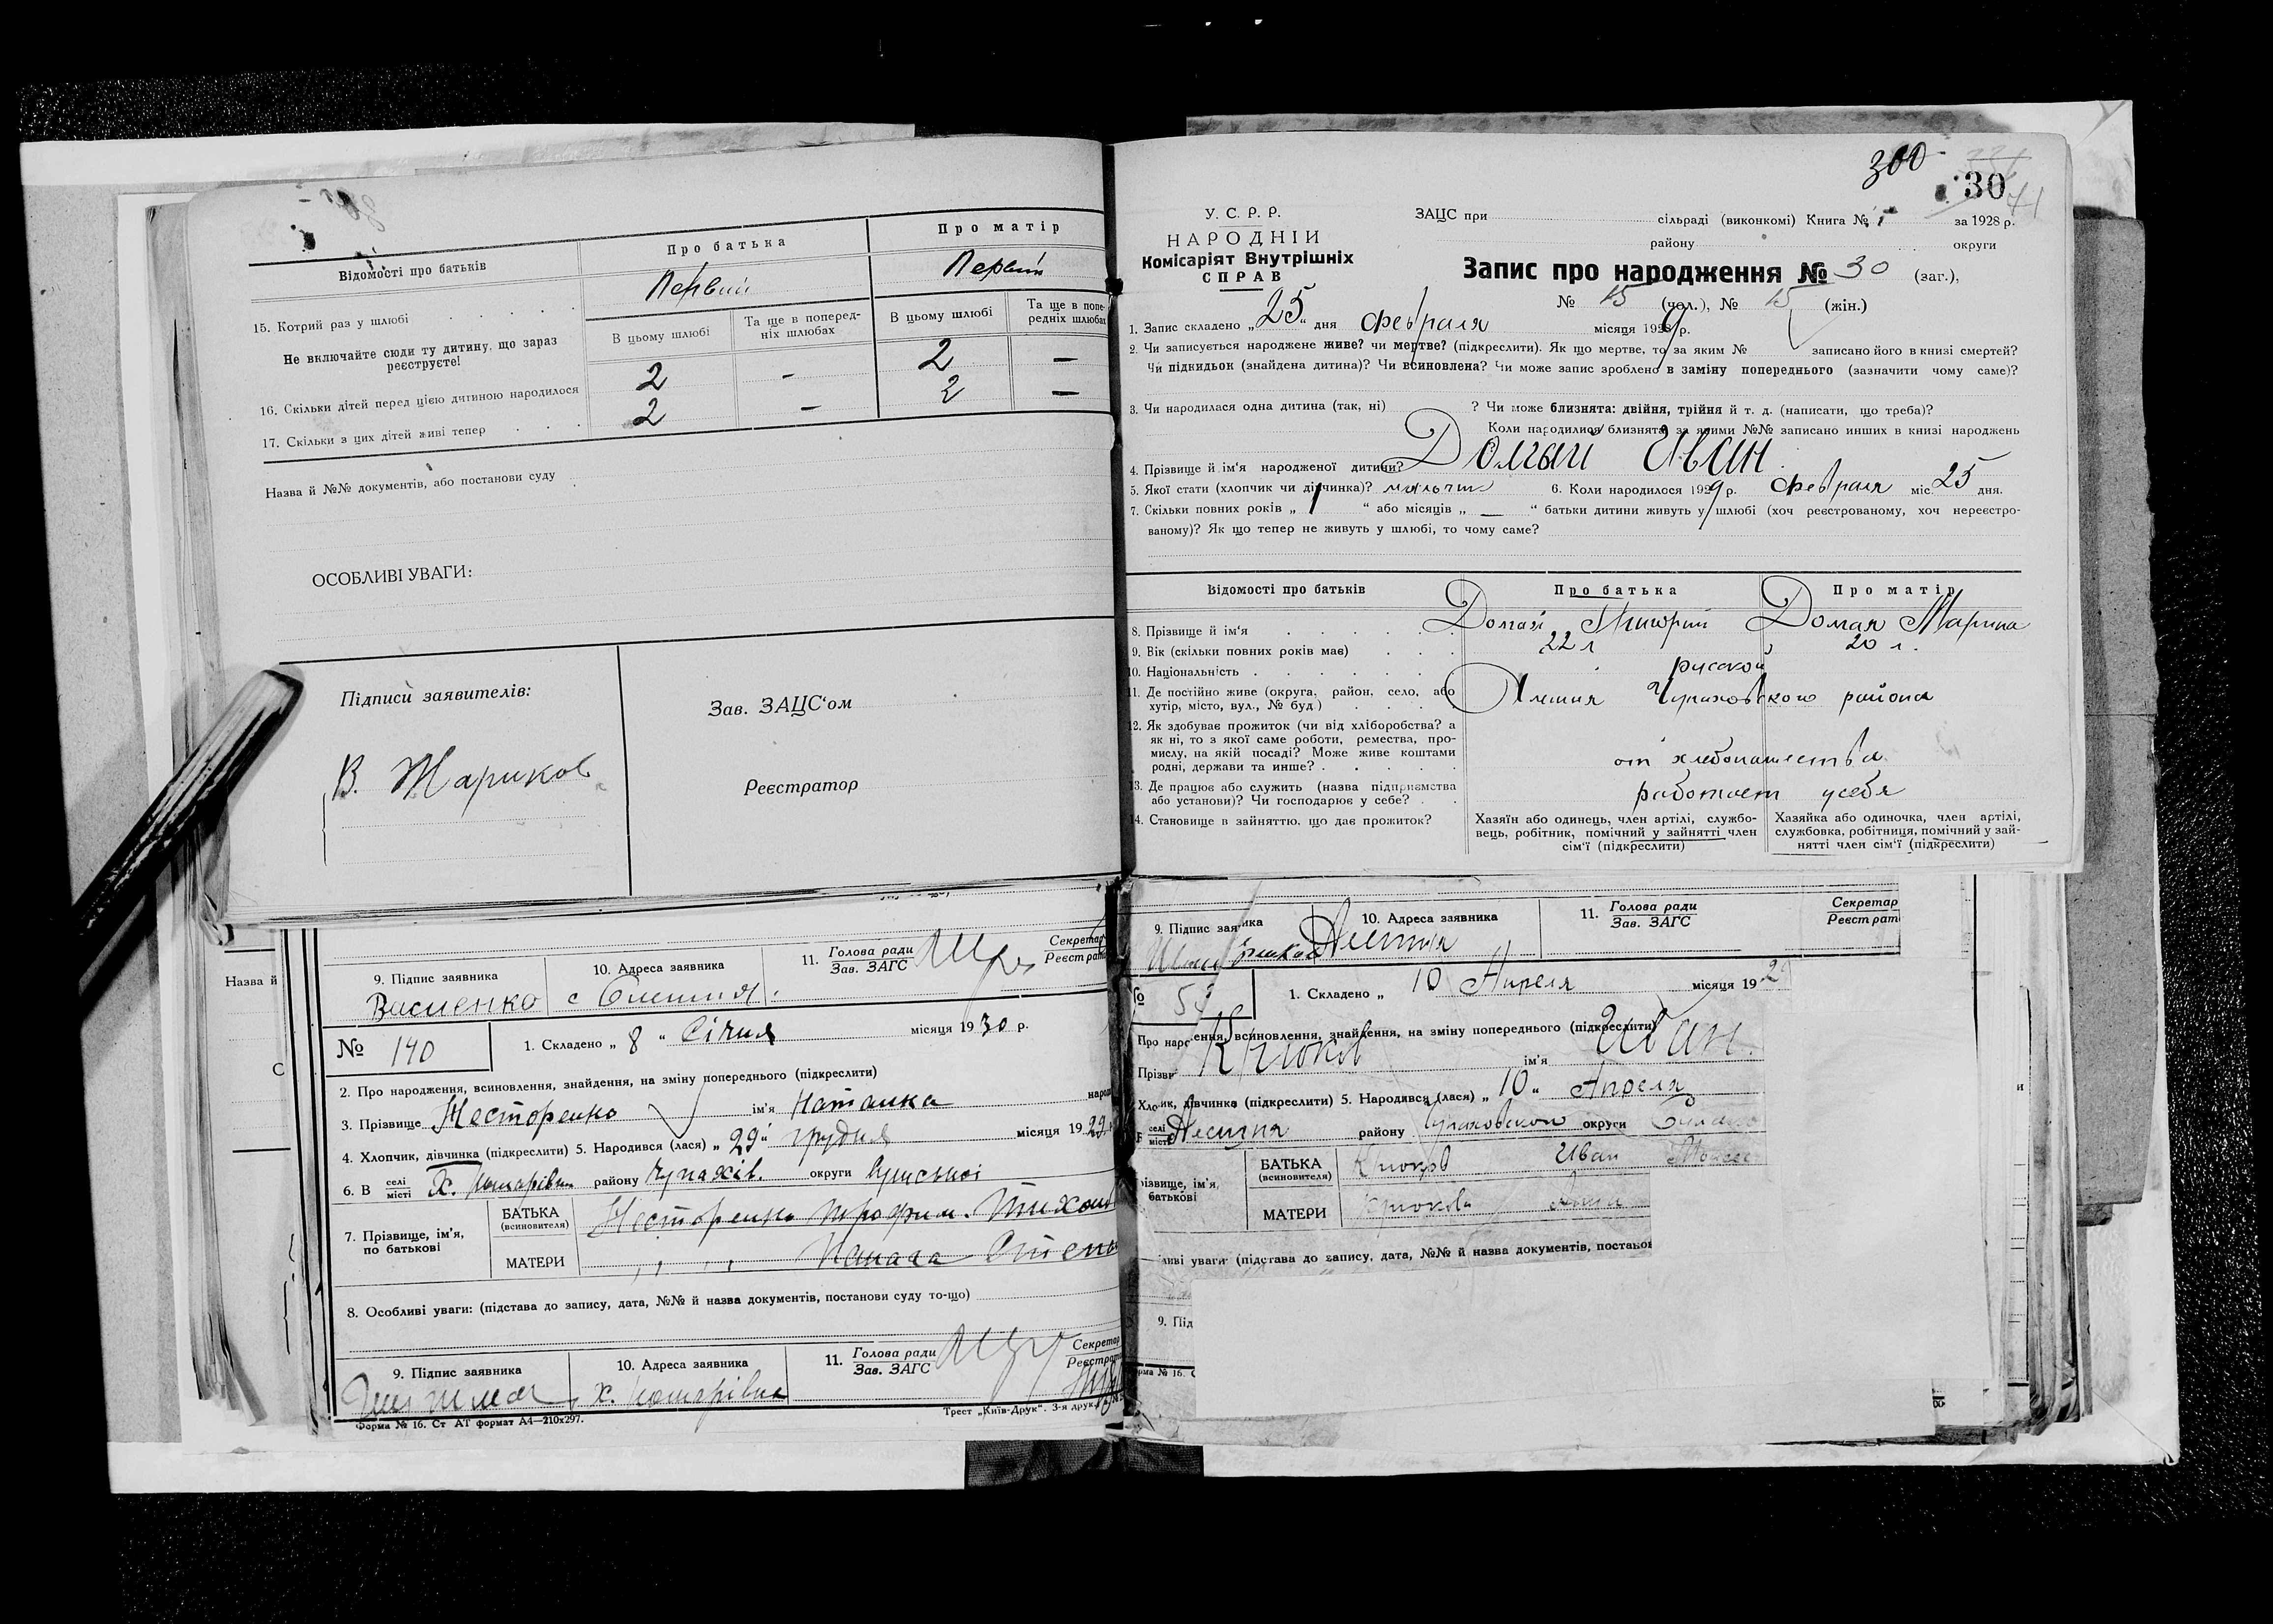 Відомості про батьків
Про батька
Про матір
Первий
Первий
15. Котрий раз у шлюбі
В цьому шлюбі
Та ще в поперед-
ніх шлюбах
В цьому шлюбі
Та ще в попе-
редніх шлюбах
Не включайте сюди ту дитину, що зараз
реєструєте!
16. Скільки дітей перед цією дитиною народилося
2 - 2 —
17. Скільки з цих дітей живі тепер
2 — 2 —
Назва й №№ документів, або постанови суду
ОСОБЛИВІ УВАГИ:
Підписи заявителів:
В. Жариков
Зав. ЗАЦС‘ом
Реєстратор
Назва й
Секретар
Реєстрат
9. Підпис заявника
10. Адреса заявника
11. Голова ради
Зав. ЗАГС
с Олешня.
№ 140
1. Складено „ 8 “ Січня місяця 1930 р.
2. Про народження, всиновлення, знайдення, на зміну попереднього (підкреслити)
3. Прізвище Несторенко ім‘я Наталка
4. Хлопчик, дівчинка (підкреслити) 5. Народився (лася) „ 29 “ грудня місяця 1929
6. В селі
місті Х. районy Чупахів. округи
7. Прізвище, ім‘я,
по батькові
БАТЬКА
(всиновителя)
Несторенко Трофим
МАТЕРИ
8. Особливі уваги: (підстава до запису, дата, №№ й назва документів, постанови суду то-що)
9. Підпис заявника
10. Адреса заявника
11. Голова ради
Зав. ЗАГС
Секретар
Форма № 16. Ст АТ формат А4—210х297.
Трест „Київ-Друк“. 3-я друк.
300
30
41
У. С. Р. Р.
НАРОДНІЙ
Комісаріят Внутрішніх
СПРАВ
ЗАЦС при сільраді (виконкомі) Книга № 1 за 1928 р.
району округи
Запис про народження № 30 (заг.),
№ 15 (чол.), № 15 (жін.)
1. Запис складено „ 25 “ дня февраля місяця 1929 р.
2. Чи записується народжене живе? чи мертве? (підкреслити). Як що мертве, то за яким № записано його в книзі смертей?
Чи підкидьок (знайдена дитина)? Чи всиновлена? Чи може запис зроблено в заміну попереднього (зазначити чому саме)?
3. Чи народилася одна дитина (так, ні) ? Чи може близнята: двійня, трійня й т. д. (написати, що треба)?
Коли народилися близнята, за якими №№ записано инших в книзі народжень
4. Прізвище й ім‘я народженої дитини? Долгай Иван
5. Якої стати (хлопчик чи дівчинка)? 6. Коли народилося 1929 р. февраля міс. 25 дня.
7. Скільки повних років „ 1 “ або місяців „ — “ батьки дитини живуть у шлюбі (хоч реєстрованому, хоч нереєстро-
ваному)? Як що тепер не живуть у шлюбі, то чому саме?
Відомості про батьків
Про батька
Про матір
8. Прізвище й ім‘я Марина
9. Вік (скільки повних років має) 22 л 20 л.
10. Національність русской
11. Де постійно живе (округа, район, село, або
хутір, місто, вул., № буд.)
Алешня Чупаховского района
12. Як здобуває прожиток (чи від хліборобства? а
як ні, то з якої саме роботи, ремества, про-
мислу, на якій посаді? Може живе коштами
родні, держави та инше?
от хлебопашества
13. Де працює або служить (назва підприємства
або установи)? Чи господарює у себе?
работает у себя
14. Становище в зайняттю, що дає прожиток?
Хазяїн або одинець, член артілі, службо-
вець, робітник, помічний у зайнятті член
сім‘ї (підкреслити)
Хазяйка або одиночка, член артілі,
службовка, робітниця, помічний у зай-
нятті член сім‘ї (підкреслити)
9. Підпис заявника
10. Адреса заявника
11. Голова ради
Зав. ЗАГС
Секретар
Реєстрат
Алешня
1. Складено „ 10 Апреля місяця 192
всиновлення, знайдення, на зміну попереднього (підкреслити)
Крюков ім‘я Иван.
дівчинка (підкреслити) 5. Народився (лася) „ 10 “ Апреля
селі
місті Алешня району Чупаховского округи
БАТЬКА
(всиновителя)
Крюков Иван
різвище, ім‘я,
батькові
МАТЕРИ
Крюкова
уваги (підстава до запису, дата, №№ й назва документів, постано
9. Під